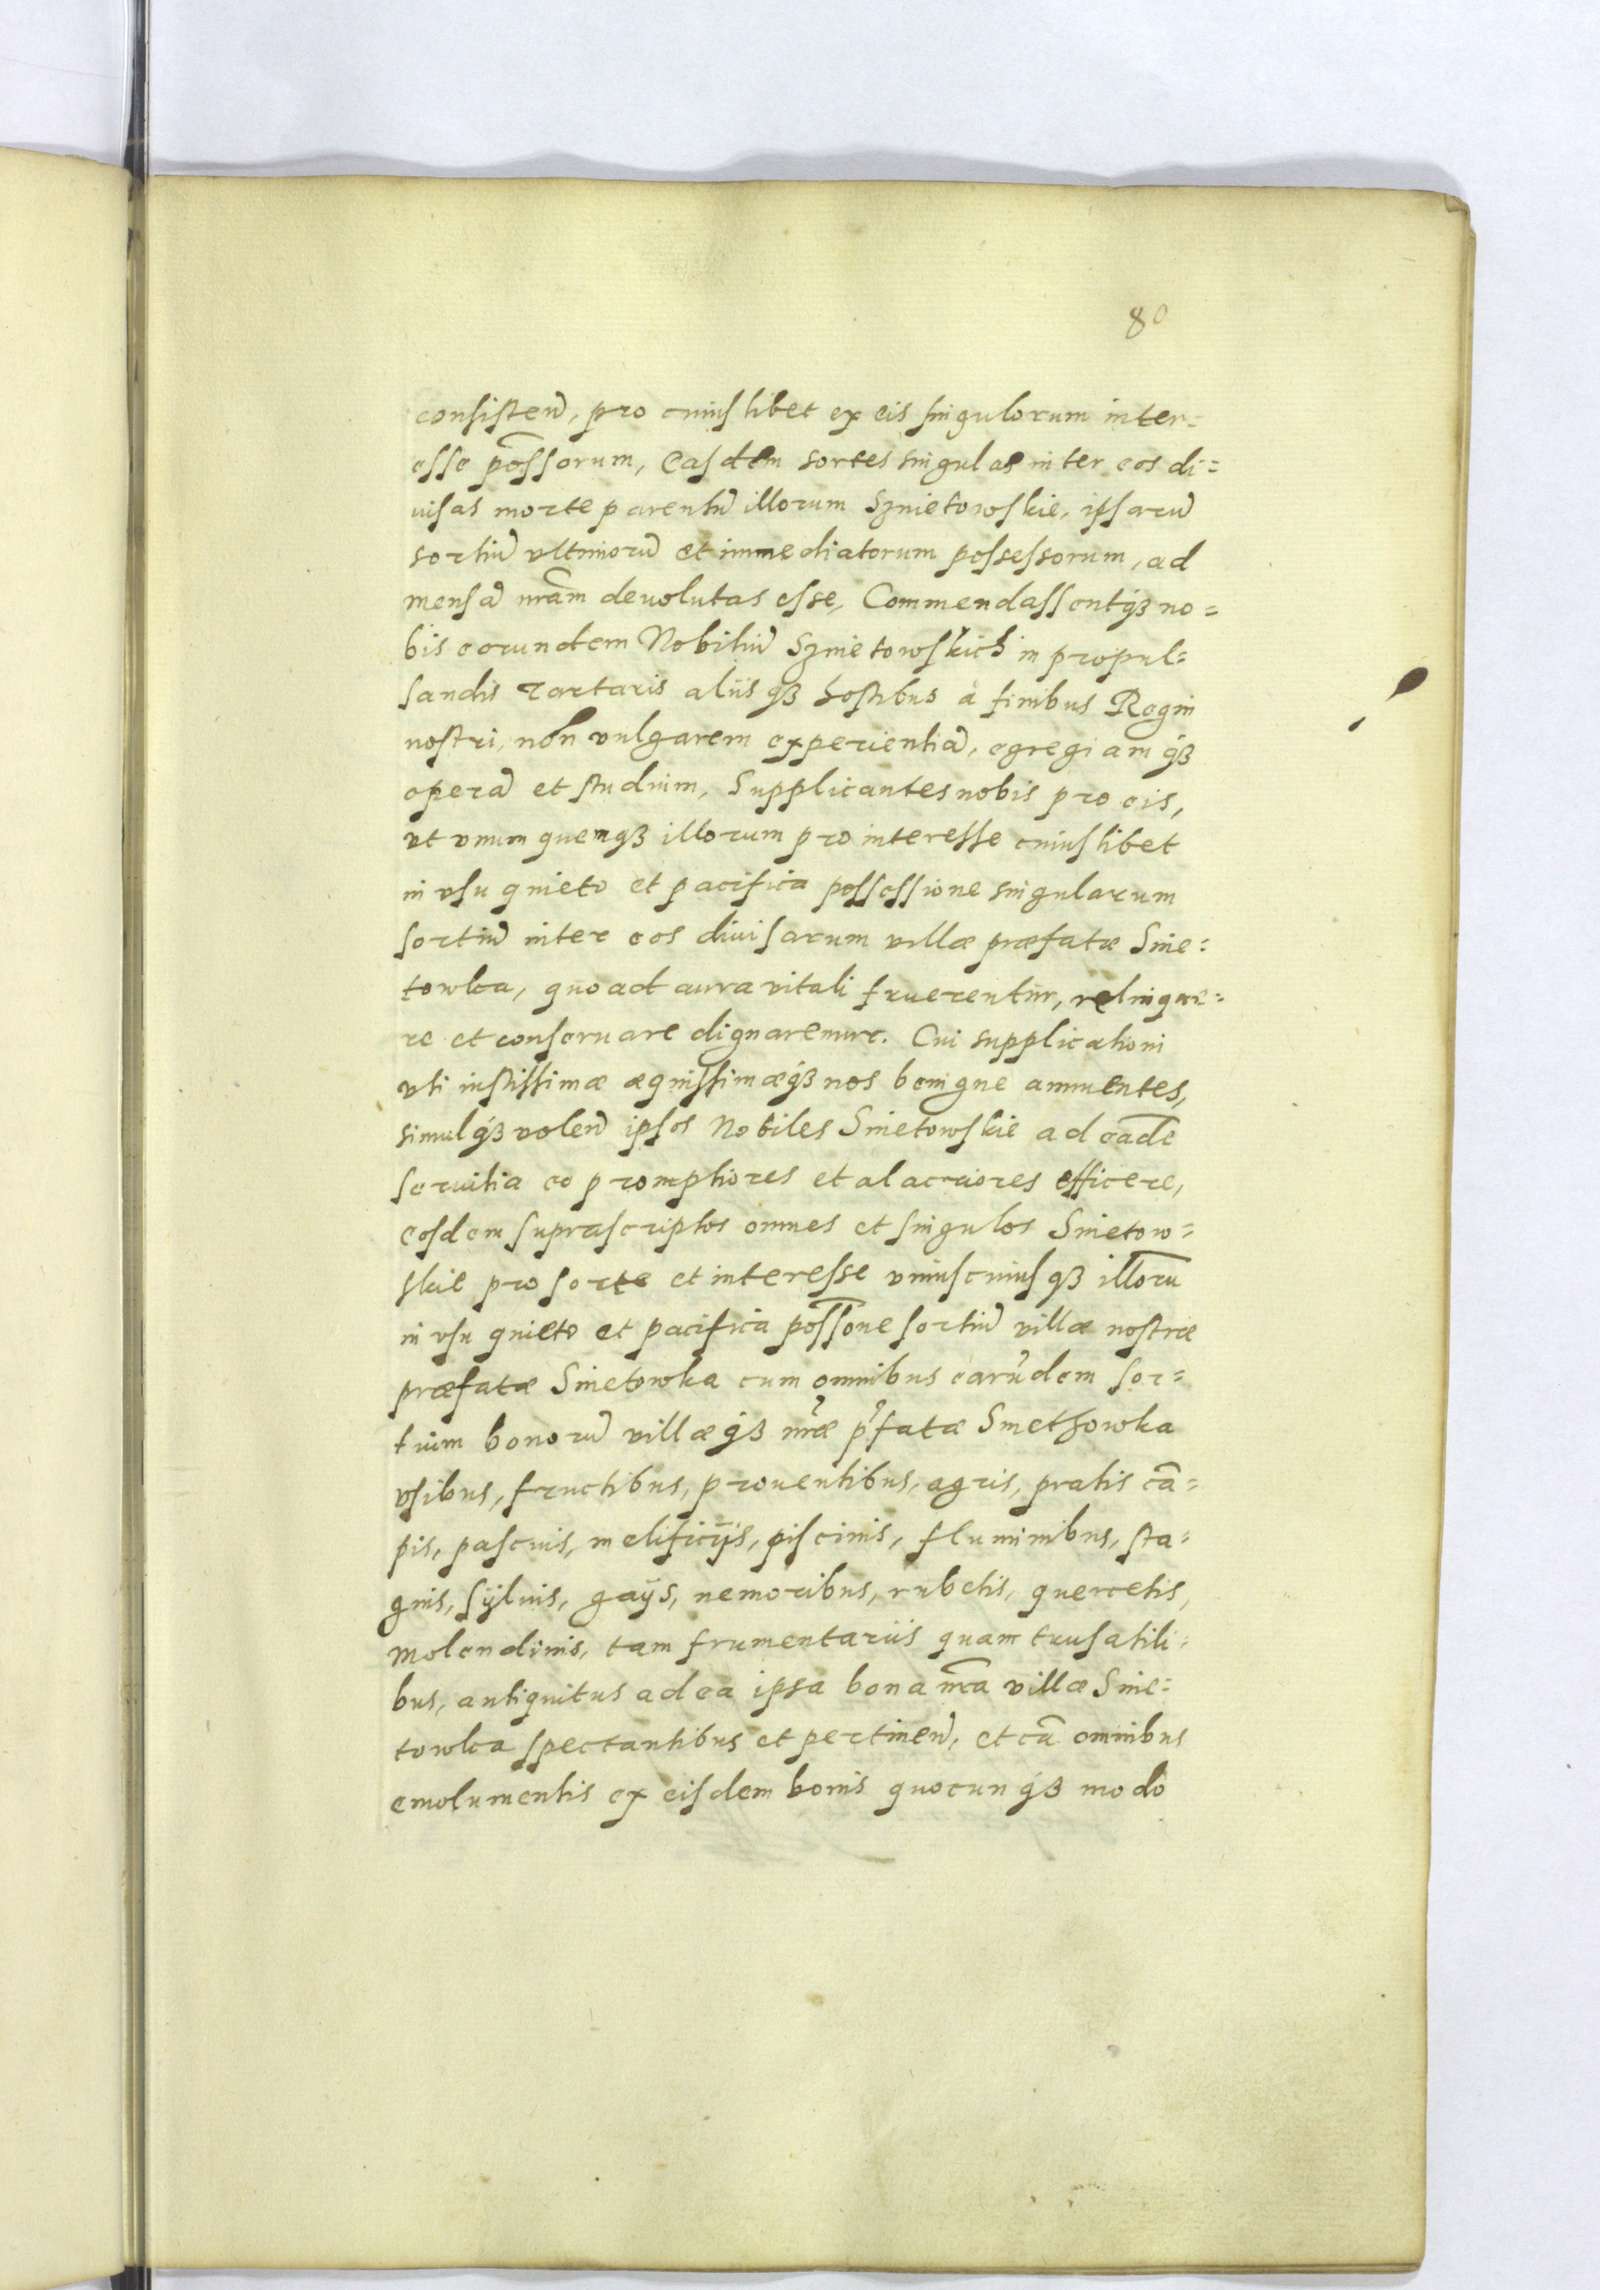 80
consisten̄, pro cuiuslibet ex eis singulorum inter=
esse pōssorum, Easdem sortes singulas inter eos di=
uisas morte parentiū illorum Szmietowskie, ipsarū
sortiū vltimorū et immediatorum possessorum, ad
mensā nr̄am deuolutas esse, Commendassentq́ꝫ no=
bis eorundem Nobiliū Szmietowskich in propul=
sandis Tartaris aliisqꝫ hostibus à finibus Regni
nostri, non vulgarem experientiā, egregiamq́ꝫ
operā et studium, Supplicantes nobis pro eis,
vt vnumquemqꝫ illorum pro interesse cuiuslibet
in vsu quieto et pacifica possessione singularum
sortiū inter eos diuisarum villæ præfatæ Smie=
towka, quoad aura vitali fruerentur, relinque=
re et conseruare dignaremur. Cui supplicationi
vti iustissimæ æquissimæq́ꝫ nos benigne annuentes,
simulq́ꝫ volen̄ ipsos Nobiles Smietowskie ad eādē
seruitia eo promptiores et alacriores efficere,
eosdem suprascriptos omnes et singulos Smietow=
skie pro sorte et interesse vniuscuiusqꝫ illorū
in vsu quieto et pacifica pōssone sortiū villæ nostræ
præfatæ Smietowka cum omnibus earūdem sor=
tium bonorū villæq́ꝫ nr̄æ p̄fatæ Smethowka
vsibus, fructibus, prouentibus, agris, pratis cā=
pis, pascuis, melificijs, piscinis, fluminibus, sta=
gnis, sÿluis, gaÿs, nemoribus, rubetis, quercetis,
Molendinis, tam frumentariis quam trusatili=
bus, antiquitus ad ea ipsa bona nr̄a villæ Smie=
towka spectantibus et pertinen̄, et cū omnibus
emolumentis ex eisdem bonis quocunq́ꝫ modo